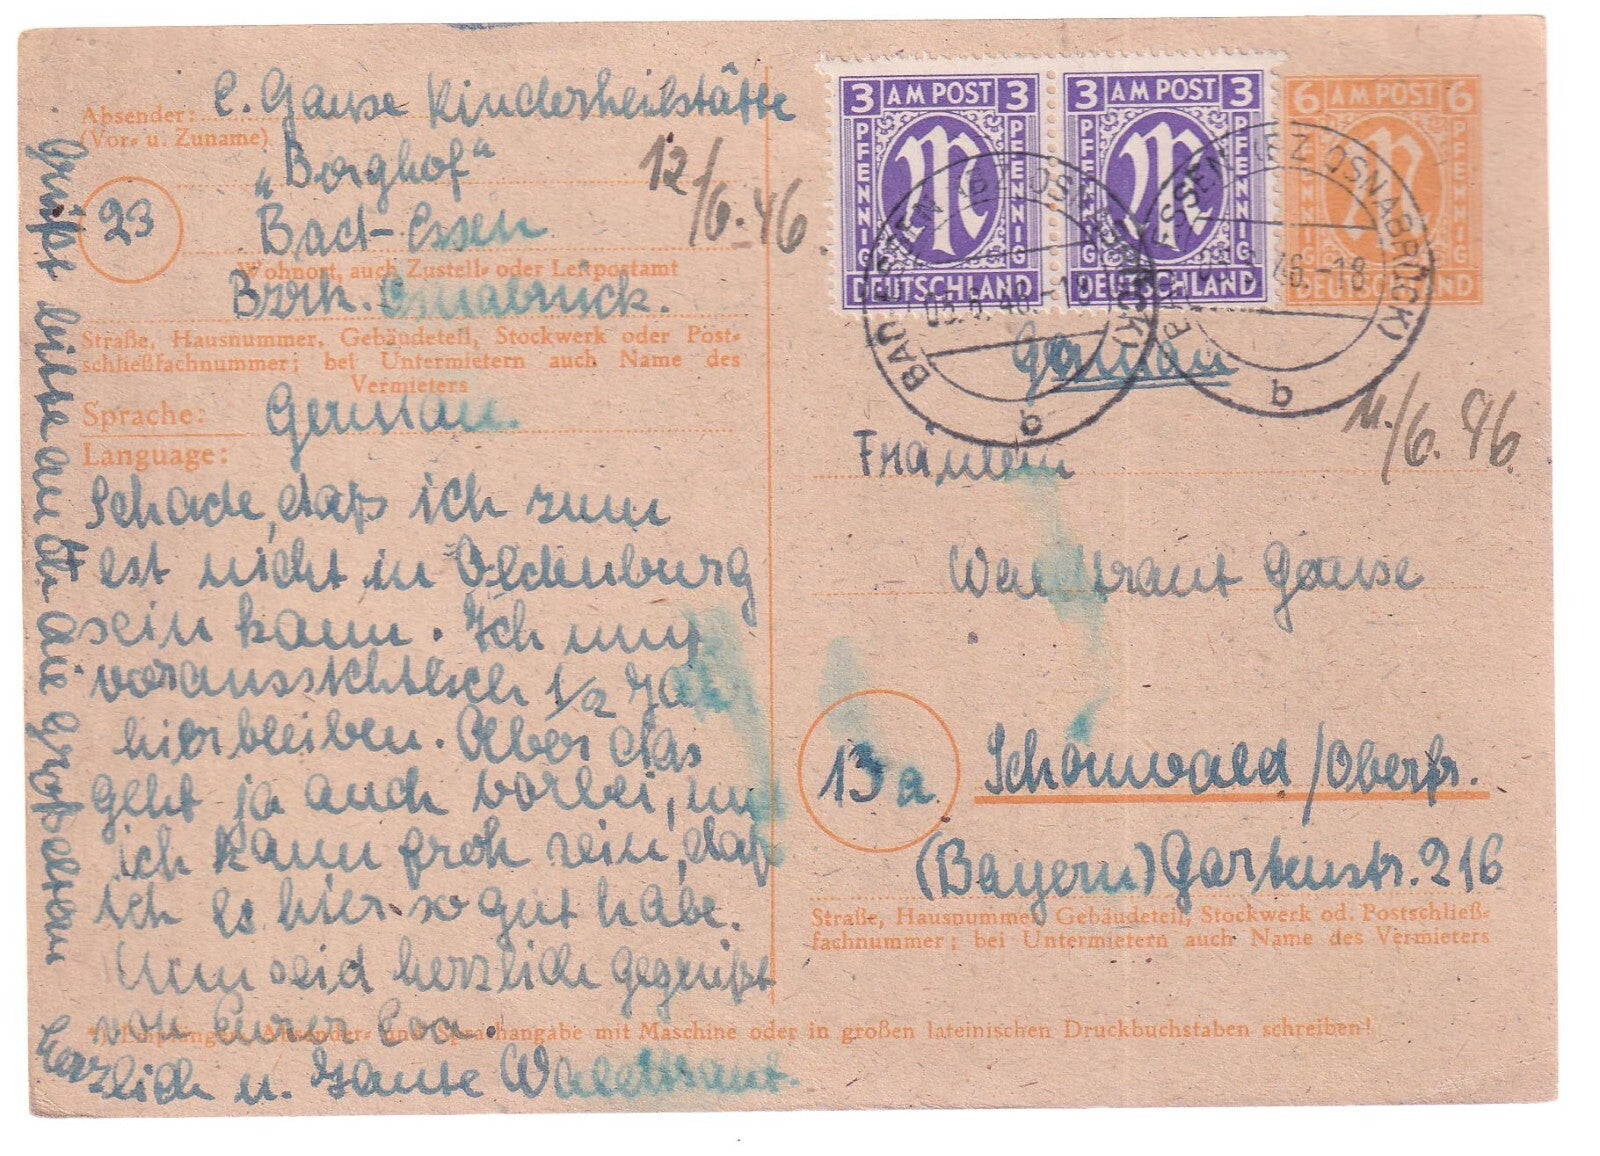 Absender:
(Vor- u. Zuname)
E. Gause Kinderheilstätte
„Borghof“
23
Bad-Essen
Wohnort, auch Zustell- oder Leitpostamt
Bzrk. Osnabrück.
Straße, Hausnummer, Gebäudeteil, Stockwerk oder Post-
schließfachnummer; bei Untermietern auch Name des
Vermieters
Sprache: German.
Language:
12/6.46.
Schade, daß ich zum
est nicht in Oldenburg
sein kann. Ich muß
voraussichtlich 1/2 Ja
hierbleiben. Aber das
geht ja auch vorbei, un
ich kann froh sein, daß
ich es hier so gut habe.
Nun seid herzlich gegrüßt
von Eurer Eva.
Grüßt bitte auch die Großeltern
herzlich u. Tante Waldtraut.
3 AM POST 3
PFENNIG PFENNIG
DEUTSCHLAND
3 AM POST 3
PFENNIG PFENNIG
DEUTSCHLAND
6 AM POST 6
PFENNIG PFENNIG
DEUTSCHLAND
BAD ESSEN (BZ OSNABRÜCK)
46.-18
b
BAD ESSEN (BZ OSNABRÜCK)
46.-18
b
German
11./6.46.
Fräulein
Waldtraut Gause
13a
Schönwald/Oberfr.
(Bayern) Gartenstr. 216
Straße, Hausnummer, Gebäudeteil, Stockwerk od. Postschließ-
fachnummer; bei Untermietern auch Name des Vermieters
*) Empfänger-, Absender- und Sprachangabe mit Maschine oder in großen lateinischen Druckbuchstaben schreiben!